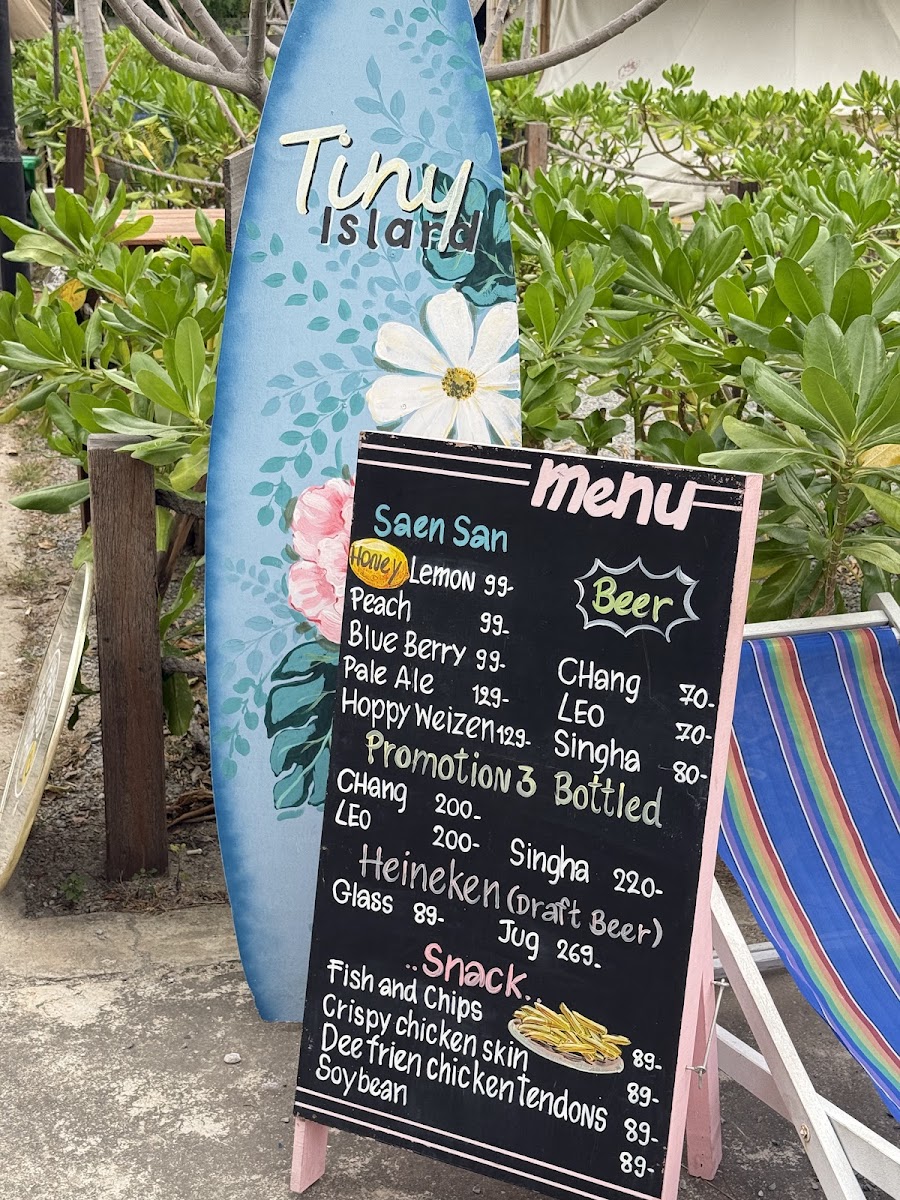 Tiny
Island
menu
Saen San
Honey Lemon 99-
Peach 99-
Blue Berry 99-
Pale Ale 129-
Hoppy Weizen 129-
Beer
CHang 70-
LEO 70-
Singha 80-
Promotion 3 Bottled
CHang 200-
LEO 200-
Singha 220-
Heineken (Draft Beer)
Glass 89-
Jug 269-
..Snack..
Fish and Chips 89-
Crispy chicken skin 89-
Dee frien chicken Tendons 89-
Soybean 89-